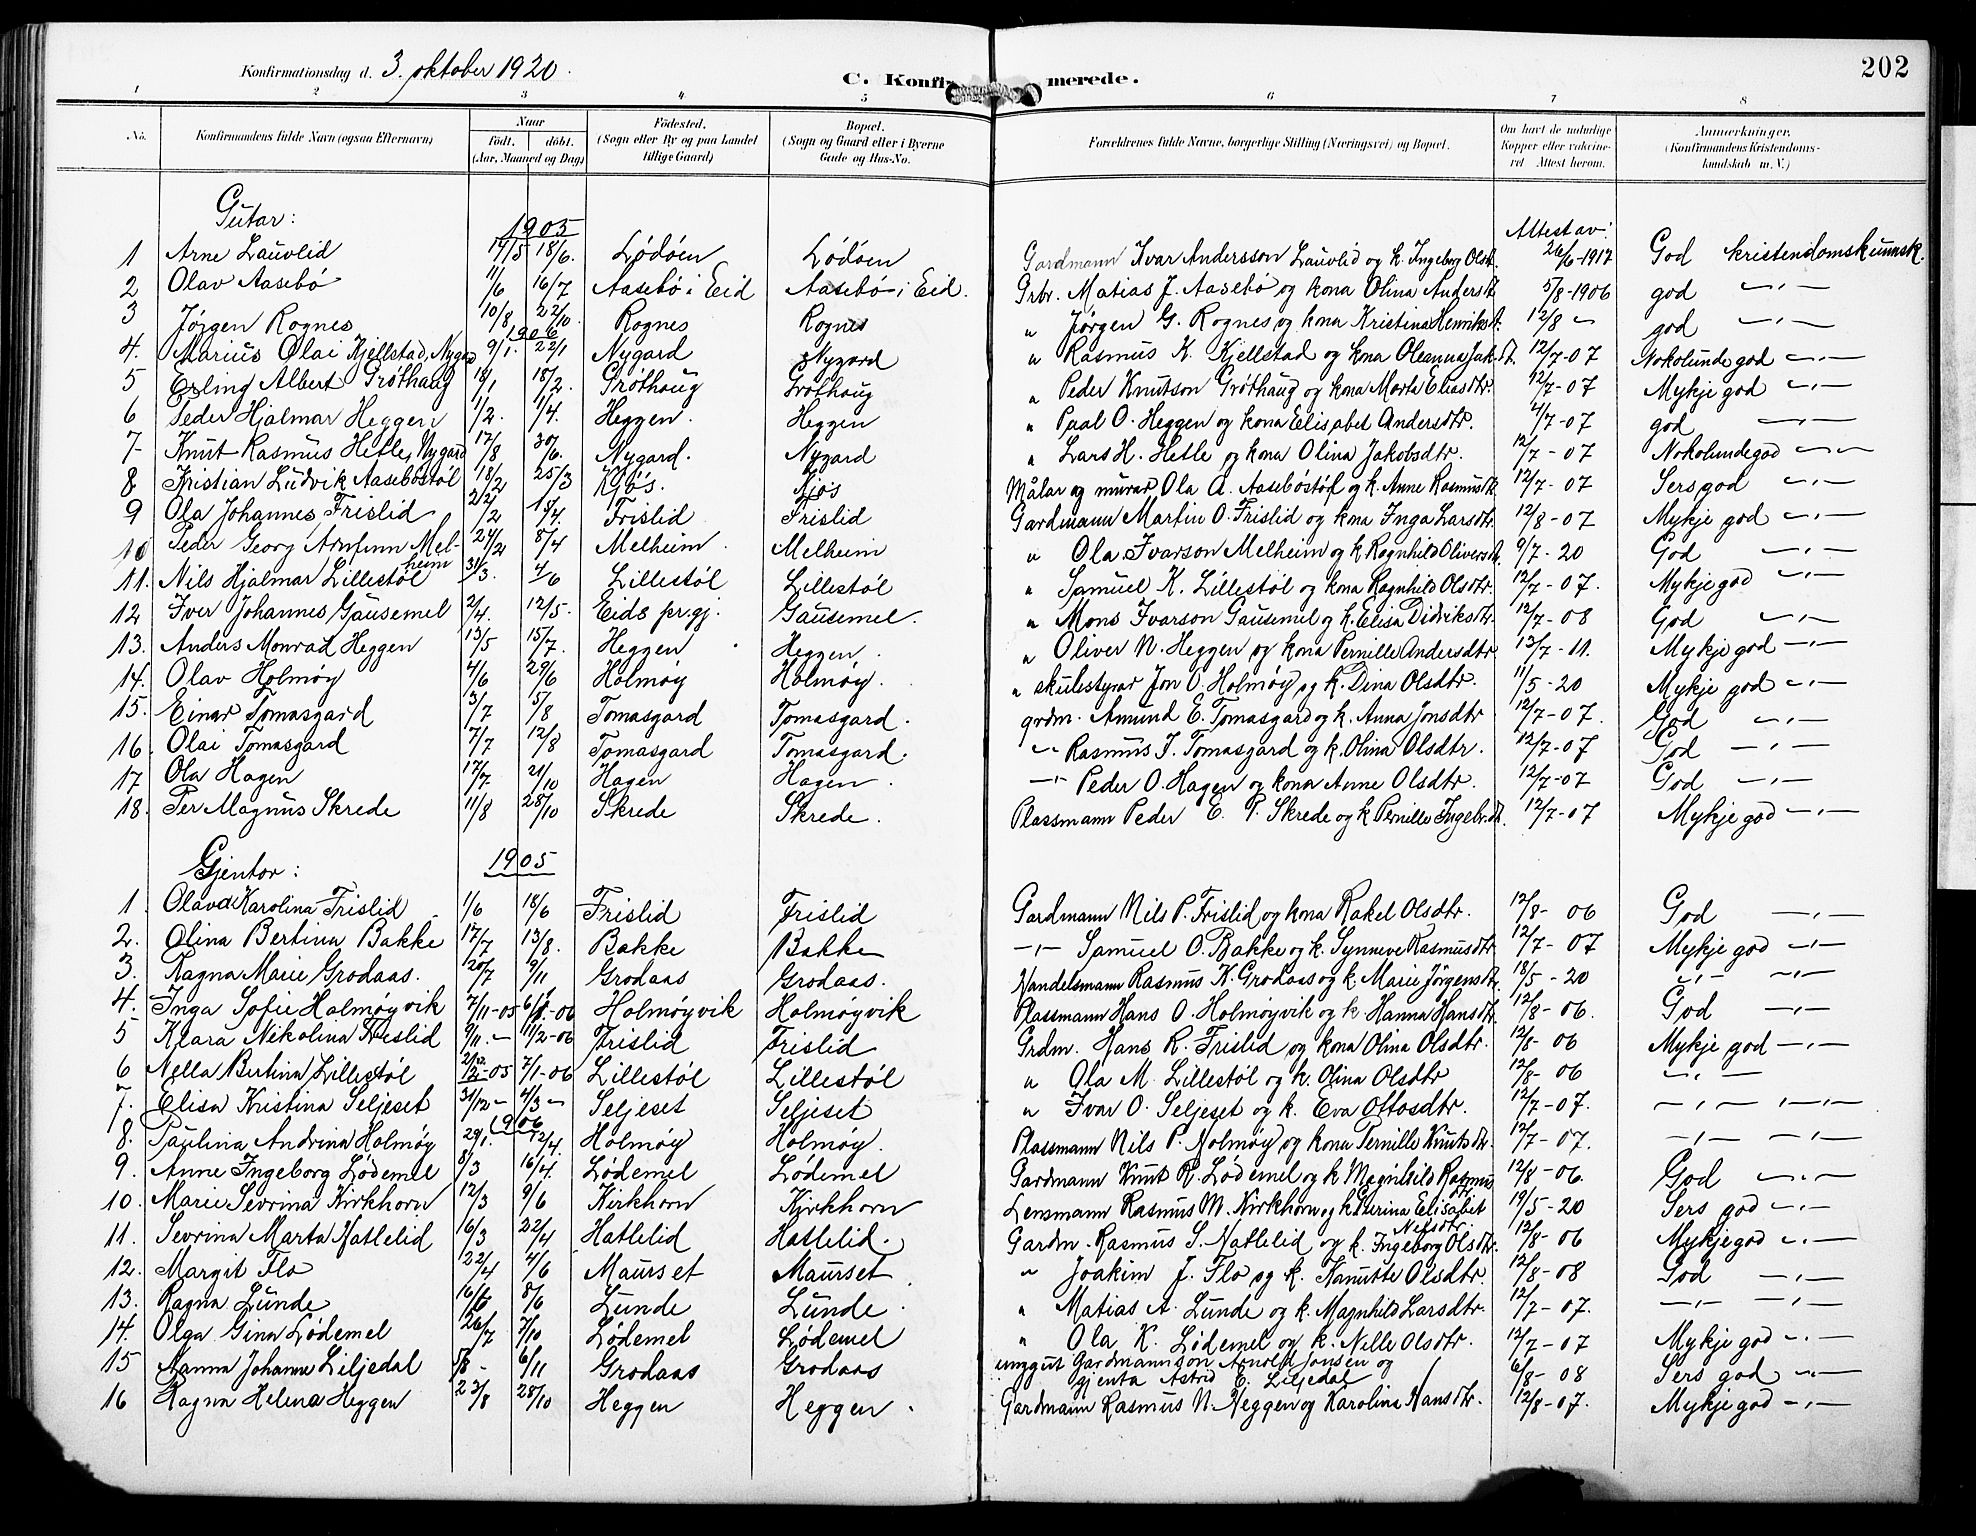 Konfirmationsdag d. 3. oktober 1920. C. Konfir merede. 202
1 2 3 4 5 6 7 8
No. Konfirmandens fulde Navn (ogsaa Efternavn) Naar født. døbt. (Aar, Maaned og Dag) Fødested. (Sogn eller By og paa Landet tillige Gaard) Bopæl. (Sogn og Gaard eller i Byerne Gade og Hus-No. Forældrenes fulde Navne, borgerlige Stilling (Næringsvei) og Bopæl. Om havt de naturlige Kopper eller vaccineret Attest herom. Anmærkninger. (Konfirmandens Kristendomskundskab m. V.)
Gutar: 1905 Attest av:
1 Arne Lauvlid 14/5 18/6. Lødøen Lødøen Gardmann Ivar Andersson Lauvlid og k. Ingeborg Olsdt. 26/6-1917 God kristendomskunnsk.
2 Olav Aasebø 11/6 16/7 Aasebø i Eid Aasebø i Eid. Grbr. Matias J. Aasebø og kona Olina Andersdt 5/8-1906 god —"—
3 Jørgen Rognes 10/8 22/10 Rognes Rognes " Jørgen G. Rognes og kona Kristina Henriksdt. 12/8 — god —"—
1906
4. Marius Olai Kjellstad, Nygard 9/1. 22/1 Nygard Nygard " Rasmus K. Kjellstad og kona Oleanna Jak.dt. 12/7-07 Nokolunde god —"—
5 Erling Albert Grøthaug 18/1 18/2. Grøthaug Grøthaug " Peder Knutson Grøthaug og kona Marta Eliasdtr. 12/7-07 Mykje god —"—
6 Peder Hjalmar Heggen 1/2. 1/4. Heggen. Heggen " Paal O. Heggen og kona Elisabet Andersdtr. 4/7-07 god —"—
7 Knut Rasmus Hetle, Nygard 17/8 30/6. Nygard. Nygard " Lars H. Hetle og kona Olina Jakobsdtr. 12/7-07 Nokolunde god —"—
8 Kristian Ludvik Aasebøstøl 18/2 25/3 Kjøs. Kjøs Målar og murar Ola A. Aasebøstøl og k. Anne Rasmusdt. 12/7-07 Sers god —"—
9 Ola Johannes Frislid 22/2 17/4. Frislid Frislid Gardmann Martin O. Frislid og kona Inga Larsdtr. 12/8-07 Mykje god —"—
10 Peder Georg Arnfinn Melheim 24/2 8/4 Melheim. Melheim " Ola Ivarson Melheim og k. Ragnhild Oliversdt. 9/7-20 God —"—
11. Nils Hjalmar Lillestøl 31/3. 4/6 Lillestøl Lillestøl " Samuel K. Lillestøl og kona Ragnhild Olsdtr. 12/7-07. Mykje god —"—
12 Iver Johannes Gausemel 2/4. 12/5. Eids pr.gj. Gausemel. " Mons Ivarson Gausemel og k. Elisa Didriksdtr. 12/7-08 God —"—
13. Anders Monrad Heggen 13/5 15/7. Heggen Heggen. " Oliver N. Heggen og kona Pernille Andersdtr 13/7-11. Mykje god —"—
14. Olav Holmøy 4/6 29/6 Holmøy Holmøy. " skulestyrar Jon O. Holmøy og k. Dina Olsdtr. 11/5-20 Mykje god —"—
15. Einar Tomasgard 3/7 5/8 Tomasgard Tomasgard. grdm. Amund E. Tomasgard og k. Anna Jonsdtr 12/7-07. God —"—
16. Olai Tomasgard 7/7 12/8 Tomasgard Tomasgard. —"— Rasmus J. Tomasgard og k. Olina Olsdtr. 12/7-07 God —"—
17 Ola Hagen 17/7 21/10 Hagen Hagen. —"— Peder O. Hagen og kona Anne Olsdtr. 12/7-07 God —"—
18. Per Magnus Skrede 11/8 28/10 Skrede Skrede. Plassmann Peder E. P. Skrede og k Pernille Ingebr.dt. 12/7-07 Mykje god —"—
Gjentor: 1905
1. Olava Karolina Frislid 1/6 18/6 Frislid Frislid Gardmann Nils P. Frislid og kona Rakel Olsdtr. 12/8-06 God —"—
2. Olina Bertina Bakke 17/7 13/8. Bakke Bakke —"— Samuel O. Bakke og k. Synneve Rasmusdtr 12/7-07 Mykje god —"—
3. Ragna Marie Grodaas. 20/7 9/11 Grodaas Grodaas. Handelsmann Rasmus K. Grodaas og k. Marie Jørgensdt. 18/5-20 —"— —"—
4. Inga Sofie Holmøyvik 7/11-05 6/1-06 Holmøyvik Holmøyvik Plassmann Hans O. Holmøyvik og k. Hanna Hansdt. 12/8-06. God —"—
5 Klara Nikolina Frislid 9/11.— 11/2-06 Frislid Frislid Grdm. Hans R. Frislid og kona Olina Olsdtr. 12/8-06 Mykje god —"—
6 Nella Bertina Lillestøl 21/12-05 7/1-06 Lillestøl Lillestøl " Ola M. Lillestøl og k. Olina Olsdtr 12/8-06 —"—
7. Elisa Kristina Seljeset 31/12— 4/3— Seljeset Seljeset " Ivar O. Seljeset og k. Eva Ottosdtr. 12/7-07. —"— —"—
1906
8. Paulina Andrina Holmøy 29/1. 12/4. Holmøy Holmøy. Plassmann Nils P. Holmøy og kona Pernille Knutsdtr. 12/7-07. —"— —"—
9. Anne Ingeborg Lødemel 8/3 16/4. Lødemel Lødemel Gardmann Knut R. Lødemel og k Magnhild Rasmusdtr. 12/8-06. God —"—
10. Marie Sevrina Kirkhorn 12/3 9/6 Kirkhorn Kirkhorn Lensmann Rasmus M. Kirkhorn og k Katerina Elisabet Nilsdtr. 19/5-20 Sers god —"—
11. Sevrina Marta Hatlelid 16/3 22/4 Hatlelid Hatlelid. Gardm. Rasmus S. Hatlelid og k. Ingeborg Olsdtr. 12/8-06 Mykje god —"—
12. Margit Flo 22/4 4/6 Maurset Maurset " Joakim J. Flo og k. Kanutte Olsdtr. 12/8-08 God —"—
13. Ragna Lunde 16/5 8/6 Lunde Lunde. " Matias A. Lunde og k. Magnhild Larsdtr. 12/7-07. —"— —"—
14. Olga Gina Lødemel 26/7 7/10 Lødemel Lødemel " Ola K. Lødemel og k. Nelle Olsdtr. 12/7-07 Mykje god —"—
15 Nanna Johanne Liljedal 5/8 — 6/11 Grodaas Grodaas unggut Gardmannsson Arnold Jonsen og gjenta Astrid E. Liljedal 6/8-08 Sers god —"—
16 Ragna Helena Heggen 23/8 28/10 Heggen Heggen. Gardmann Rasmus N. Heggen og Karolina Hansdtr. 12/8-07. Mykje god —"—